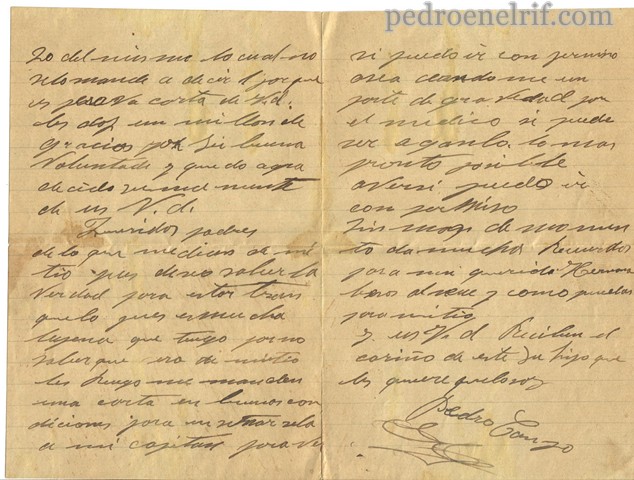 pedroenelrif.com
20 del mismo lo cual no
se lo mande a decir porque
es para la carta de Vd.
les doy un millon de
gracias por su buena
Voluntad y quedo agra
decido sumamente
de us V.d.
Queridos padres
de lo que me dicen de mi
tio pues deseo saber la
verdad para estar tran
quelo pues es mucha
la pena que tengo por no
saber que era de mi tio
les Ruego me manden
una carta en buenos con
diciones para enseñarsela
a mi capitan para ver
si puedo ir con permiso
osea
un
parte de gravedad por
el medico si puede
ser aganlo lo mas
pronto posible
a ver si puedo ir
con permiso
Sin mas de momen
to da muchos Recuerdos
para mi querida Herma
besos
y como puedas
para mi tio
y us V.d Reciban el
cariño de este Su hijo que
les quiere que lo soy
Pedro